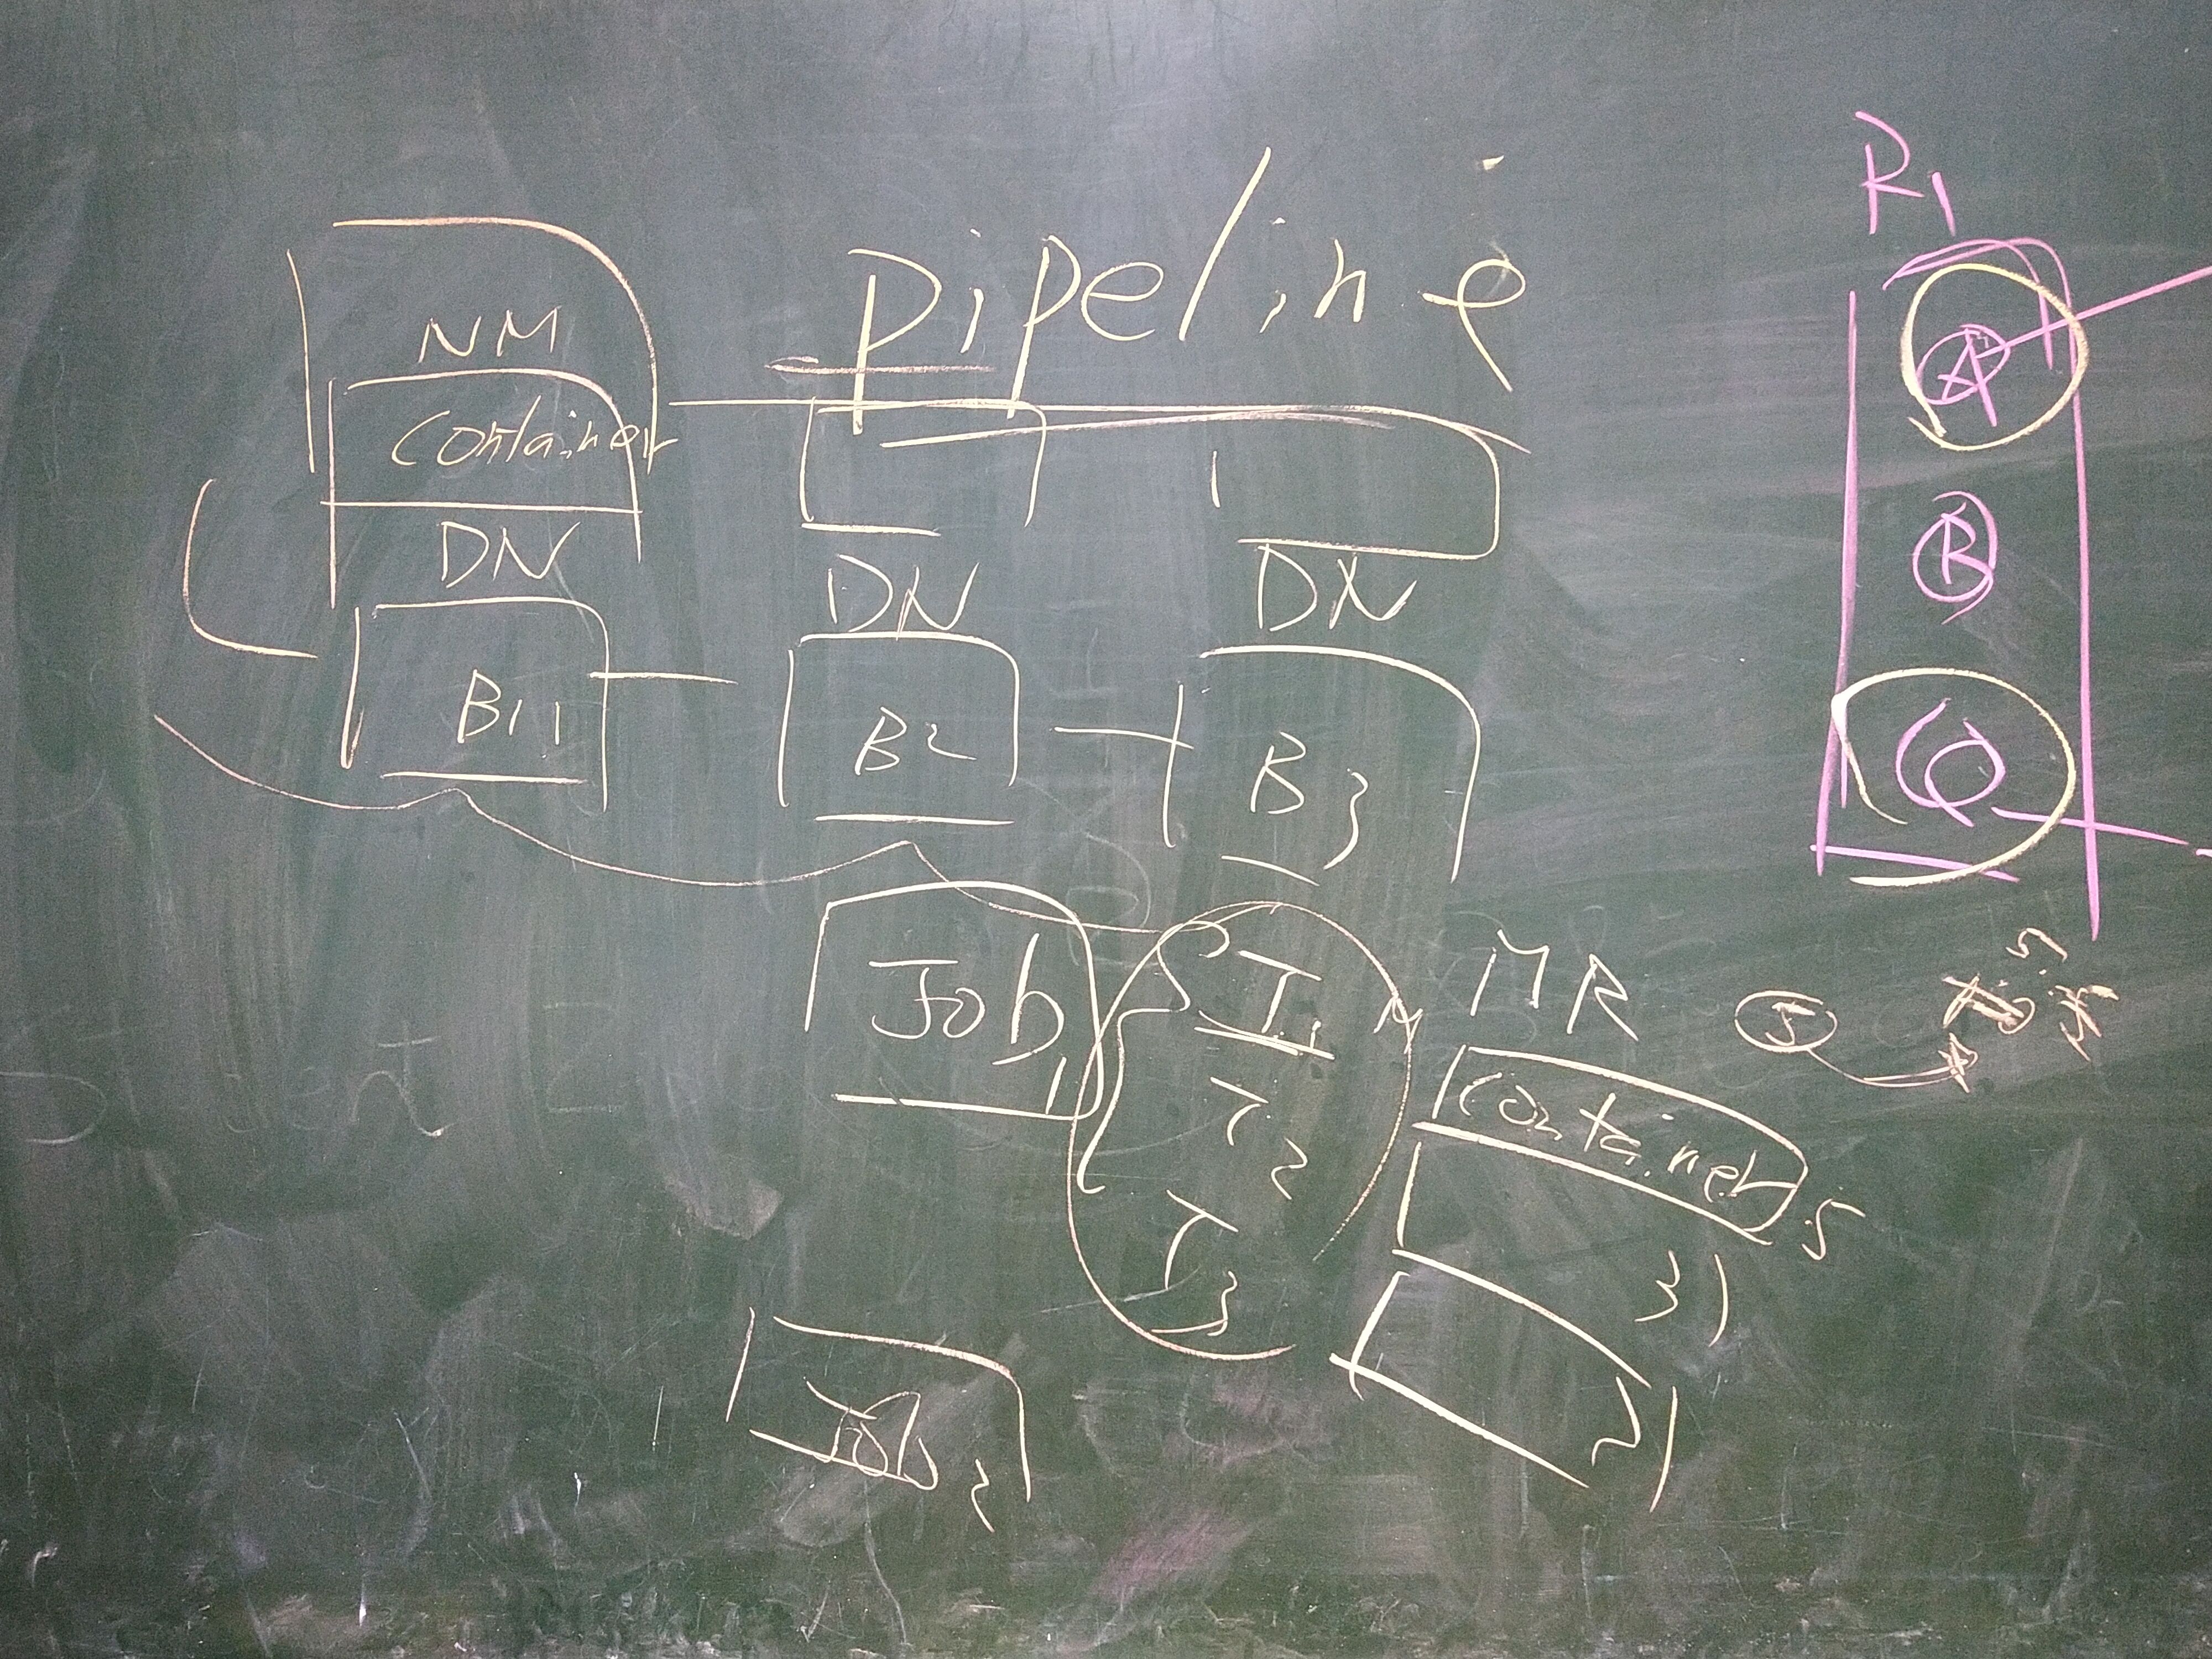 pipeline
R1
NM
Container
DN
DN
DN
A
B
B1
B2
B3
Job1
T1
T2
T3
MR
5
Container
5
3
2
Job2